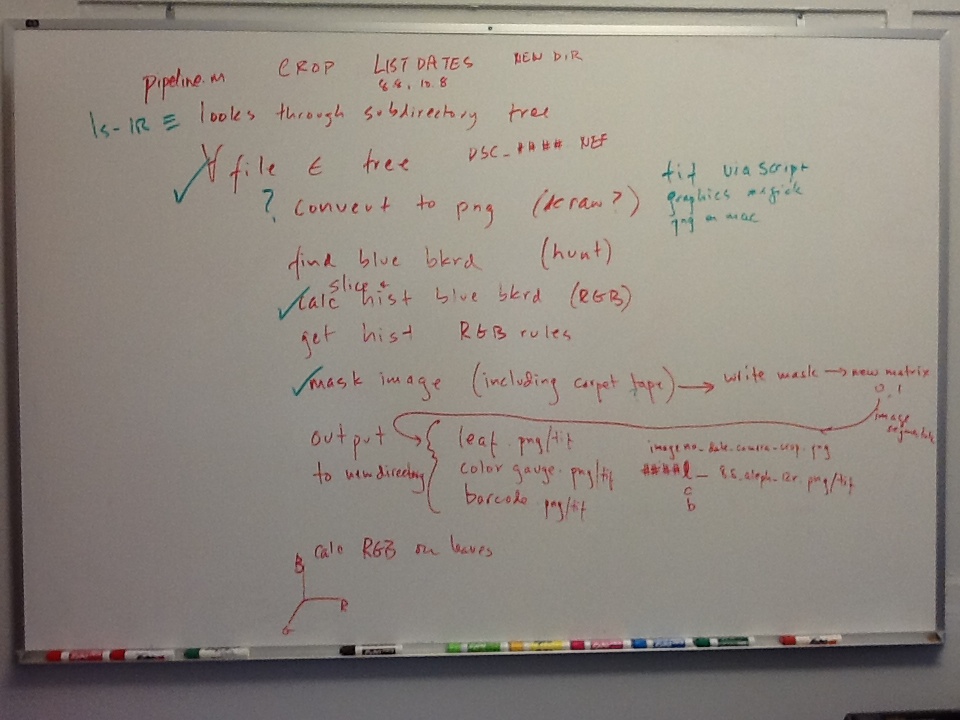 pipeline.m CROP LIST DATES NEW DIR
8.8, 10.8
ls-lR ≡ looks through subdirectory tree
∀ file ∈ tree DSC_#### NEF
? convert to png (dcraw?)
tif via script
graphics magick
png on mac
find blue bkrd (hunt)
slice +
calc hist blue bkrd (RGB)
get hist RGB rules
mask image (including carpet tape) → write mask → new matrix
0, 1
image
output
to new directory
leaf .png/tif
color gauge .png/tif
barcode .png/tif
image no_date_camera_crop.png
####l_ 8.8_aleph_ .png/tif
c
b
calc RGB on leaves
B
R
G